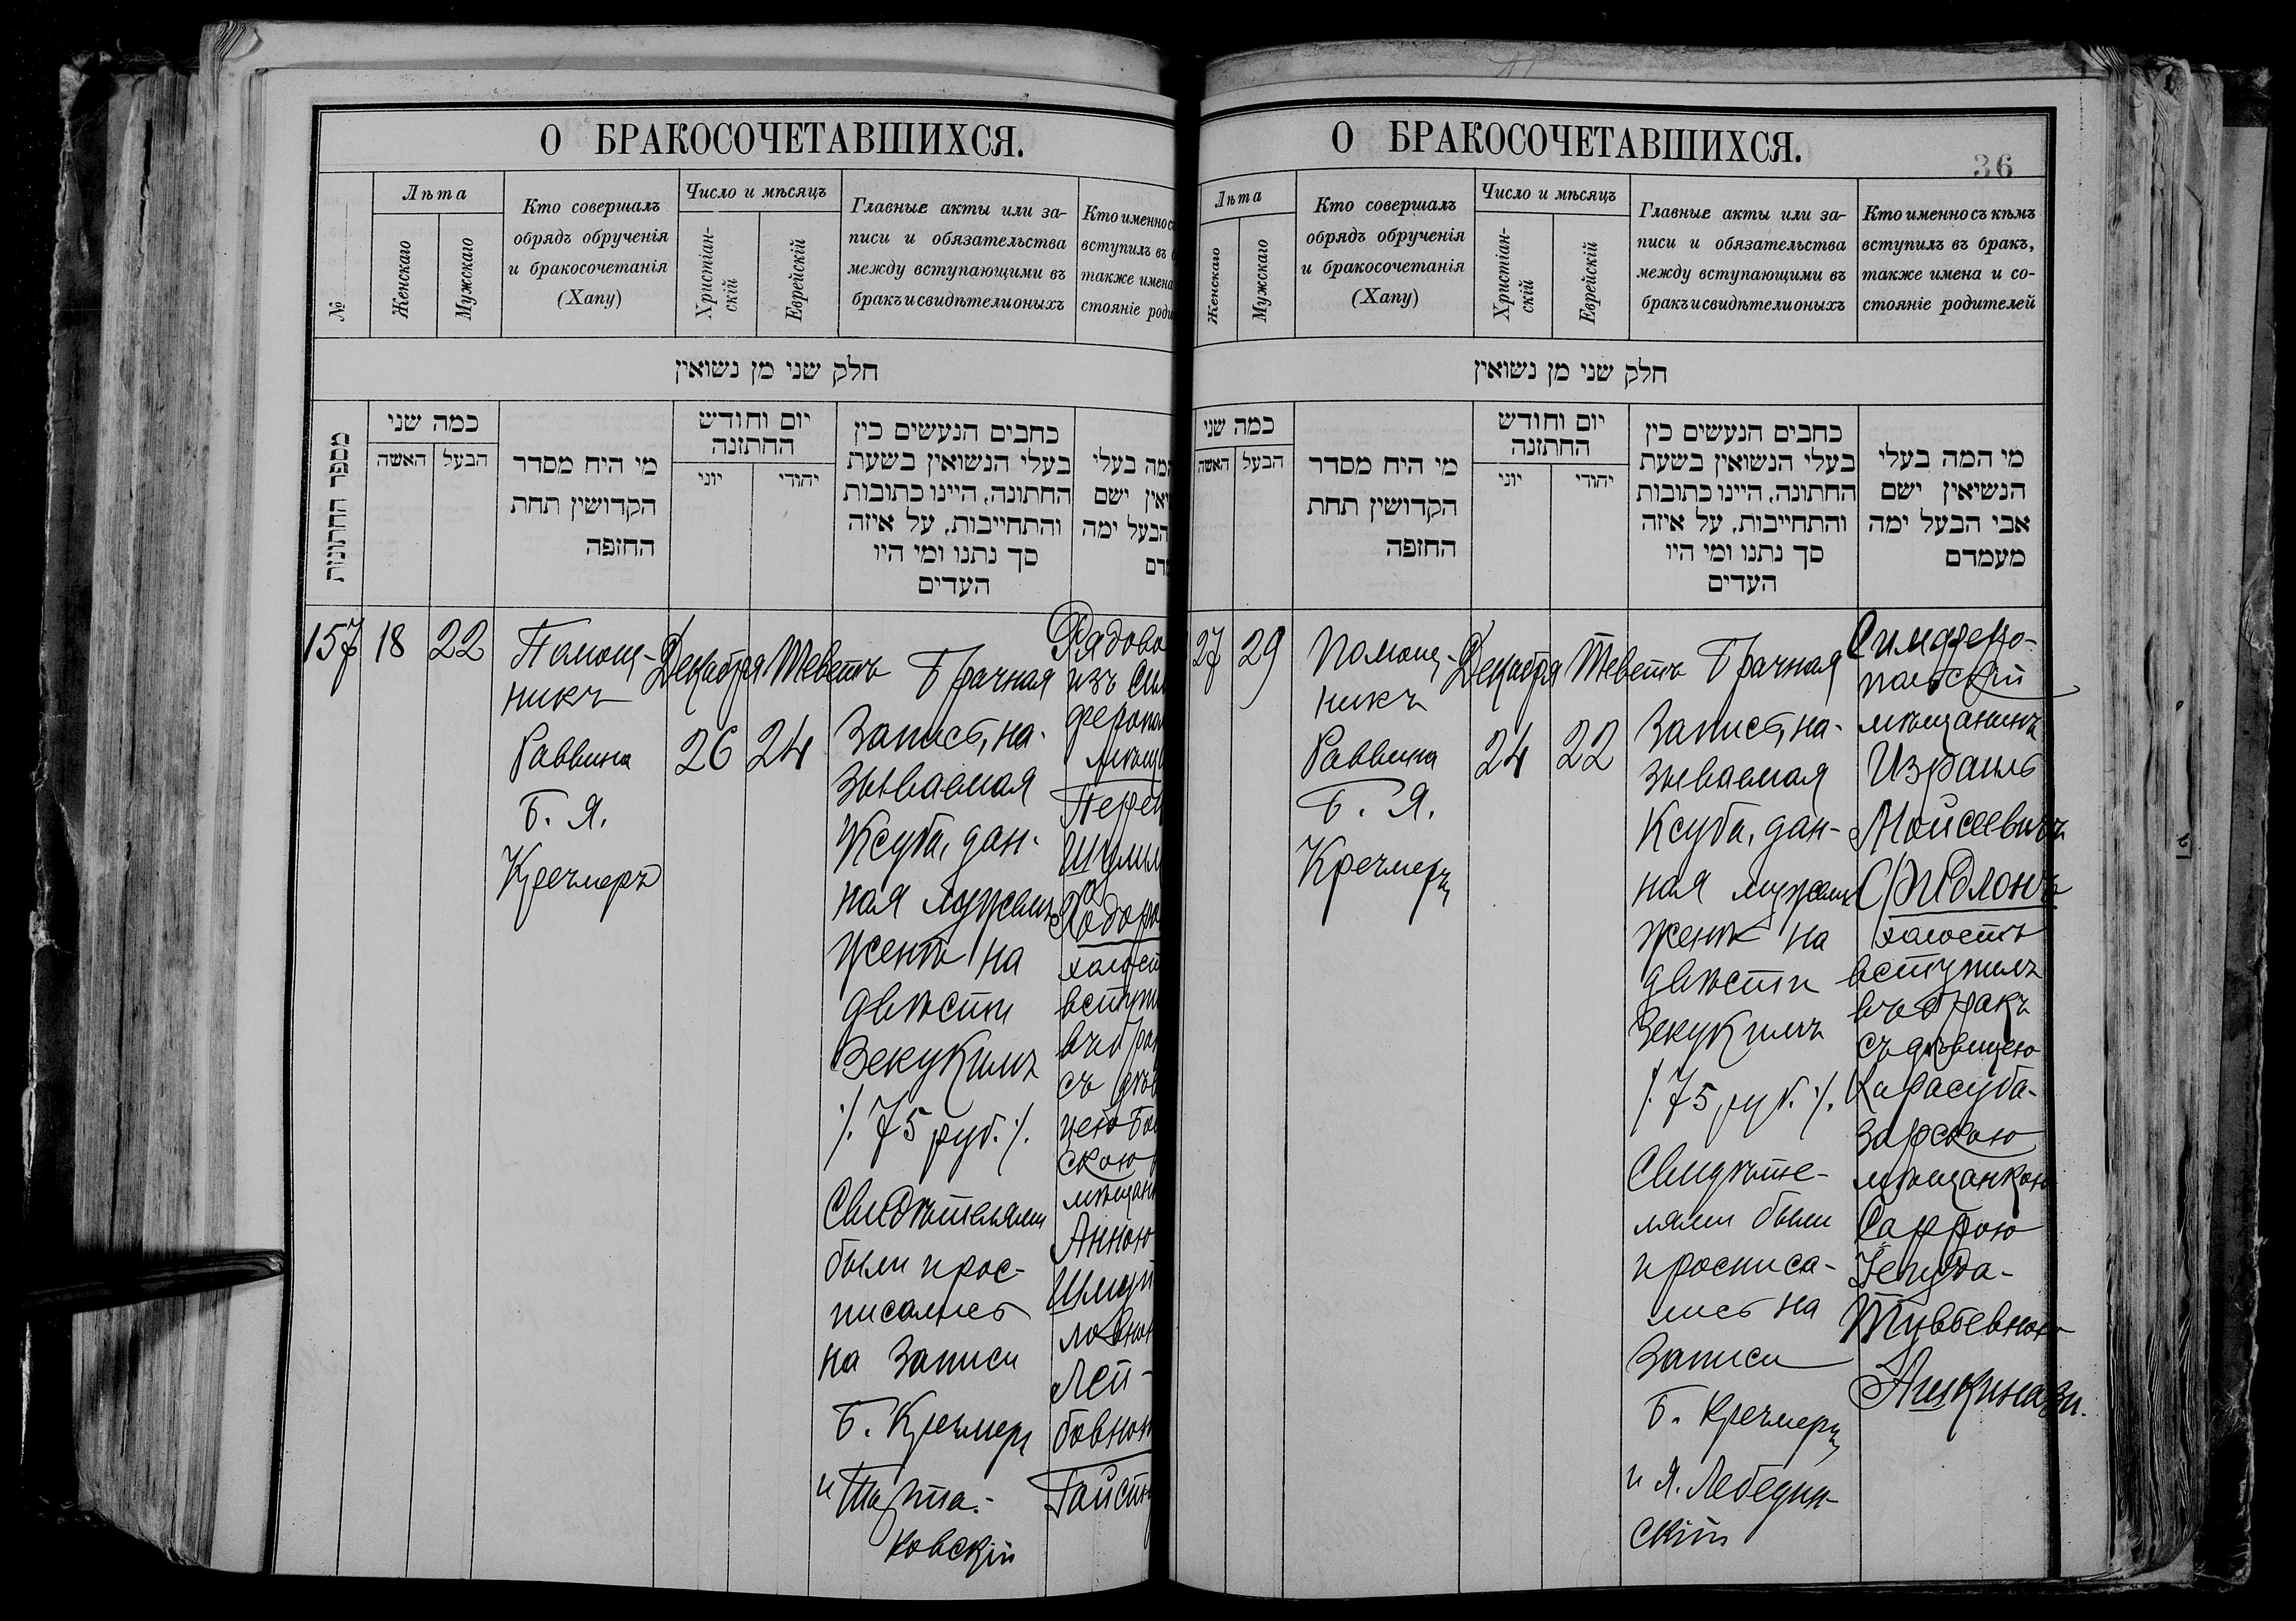 О БРАКОСОЧЕТАВШИХСЯ.
№
Лѣта
Женскаго
Мужскаго
Кто совершалъ
обрядъ обрученія
и бракосочетанія
(Хапу)
Число и мѣсяцъ
Христіан-
скій
Еврейскій
Главные акты или за-
писи и обязательства
между вступающими въ
бракъ и свидѣтели оныхъ
Кто именно
вступилъ въ
также имена
стояніе
חלק שני מן נשואין
מספר החתונות
כמה שני
האשה
הבעל
מי היח מסדר
הקדושין תחת
החופה
יום וחודש
החתונה
יוני
יהודי
כתבים הנעשים בין
בעלי הנשואין בשעת
החתונה, היינו כתובות
והתחייבות, על איזה
סך נתנו ומי היו
העדים
המה בעלי
ישם
הבעל ימה
157
18
22
Помощ-
никъ
Раввина
Б. Я.
Кречмеръ
Декабря
26
Теветъ
24
Брачная
Запись, на-
зываемая
Ксуба, дан-
ная мужемъ
женѣ на
двѣсти
Зекукимъ
/. 75 руб. /.
Свидѣтелями
были и рос-
писались
на Записи
Б. Кречмеръ
и Тарта-
ковскій
изъ
скою
Анною
Лей-
О БРАКОСОЧЕТАВШИХСЯ.
36
Лѣта
Женскаго
Мужскаго
Кто совершалъ
обрядъ обрученія
и бракосочетанія
(Хапу)
Число и мѣсяцъ
Христіан-
скій
Еврейскій
Главные акты или за-
писи и обязательства
между вступающими въ
бракъ и свидѣтели оныхъ
Кто именно съ кѣмъ
вступилъ въ бракъ,
также имена и со-
стояніе родителей
חלק שני מן נשואין
כמה שני
האשה
הבעל
מי היח מסדר
הקדושין תחת
החופה
יום וחודש
החתונה
יוני
יהודי
כתבים הנעשים בין
בעלי הנשואין בשעת
החתונה, היינו כתובות
והתחייבות, על איזה
סך נתנו ומי היו
העדים
מי המה בעלי
הנשיאין ישם
אבי הבעל ימה
מעמדם
27
29
Помощ-
никъ
Раввина
Б. Я.
Кречмеръ
Декабря
24
Теветъ
22
Брачная
Запись, на-
зываемая
Ксуба, дан-
ная мужемъ
женѣ на
двѣсти
Зекукимъ
/. 75 руб. /.
Свидѣте-
лями были
и росписа-
лись на
Записи
Б. Кречмеръ
и Я. Лебедин-
скій
Симферо-
польскій
мѣщанинъ
Израиль
Мойсеевичъ
Фидлонъ
холостъ
вступилъ
въ бракъ
съ дѣвицею
Карасуба-
зарскою
мѣщанкою
Саррою
Іегуда-
Тувьевною
Ашкинази.